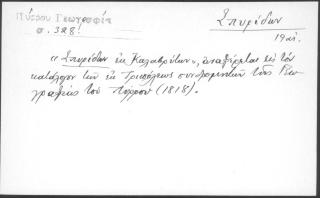 Πύρρου Γεωγραφία
σ. 328!
Σπυρίδων
19 αἰ.
"Σπυρίδων ἐκ Καλαβρύτων", ἀναφέρεται εἰς τὸν
κατάλογον τῶν ἐκ Τριπόλεως συνδρομητῶν τῆς Γεω
γραφίας τοῦ Πύρρου (1818).